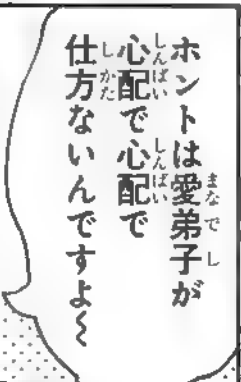 ホントは愛弟子が
心配で心配で
仕方ないんですよ〜